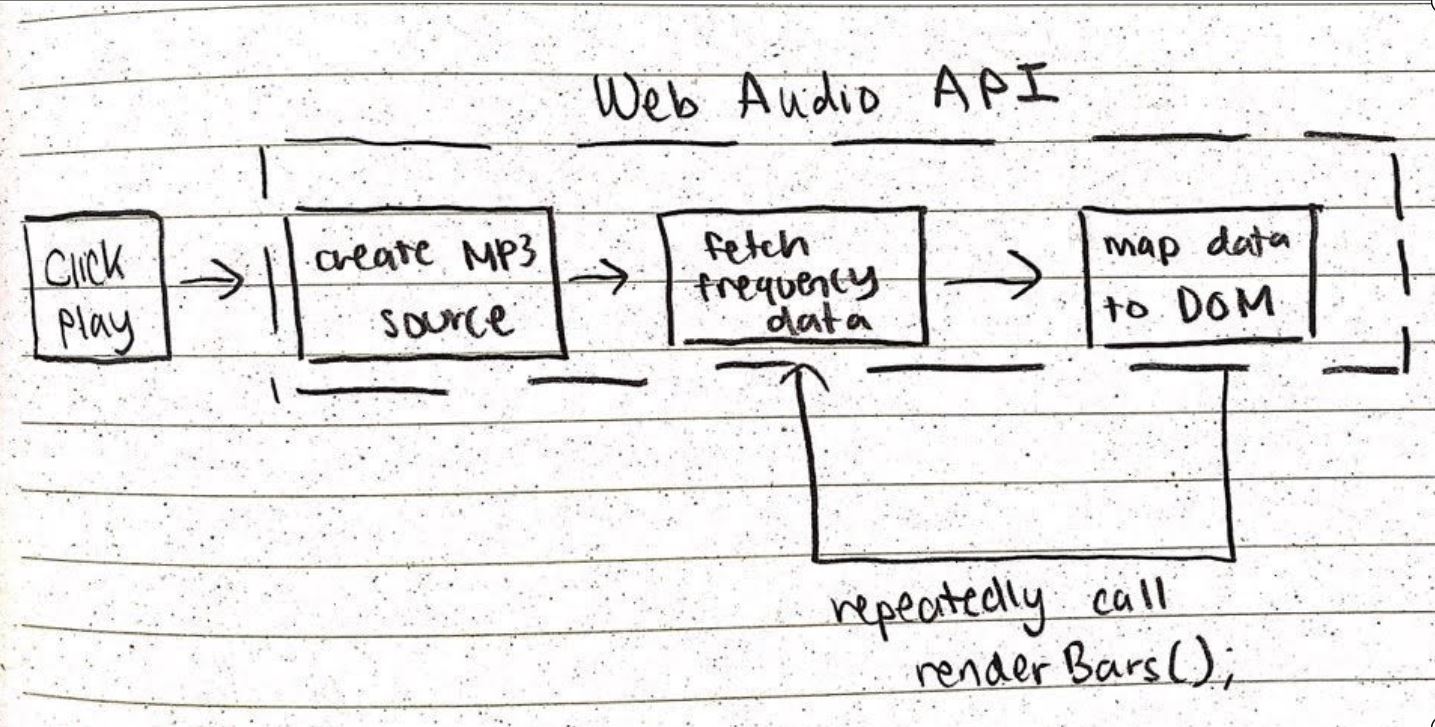 Web Audio API
Click
Play
create MP3
source
fetch
frequency
data
map data
to DOM
repeatedly call
renderBars();